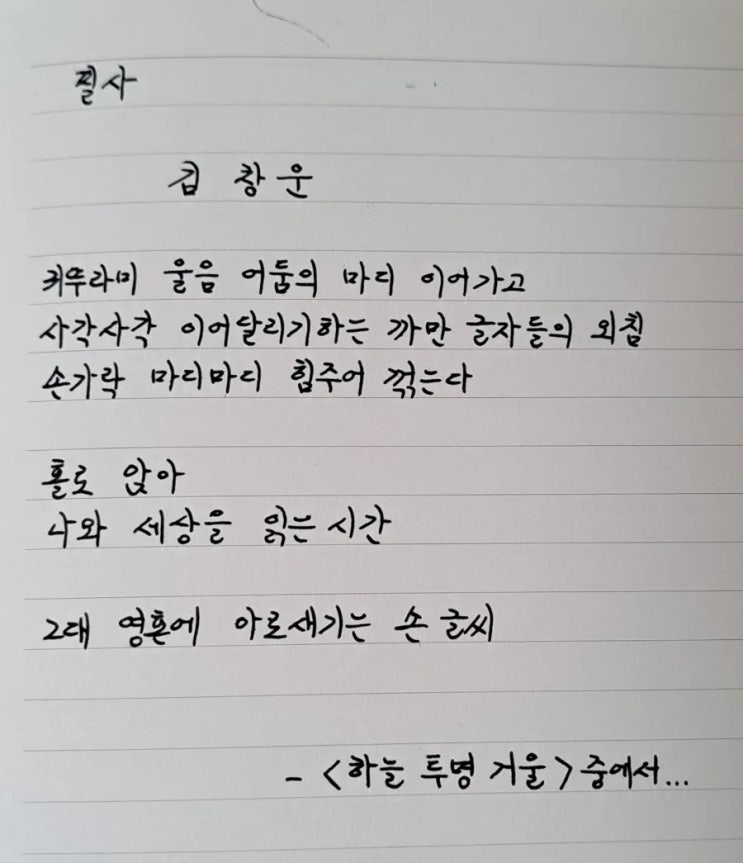 필사
김 창 운
귀뚜라미 울음 어둠의 마디 이어가고
사각사각 이어달리기하는 까만 글자들의 외침
손가락 마디마디 힘주어 꺾는다
홀로 앉아
나와 세상을 읽는 시간
그대 영혼에 아로새기는 손 글씨
- <하늘 투명 거울> 중에서...